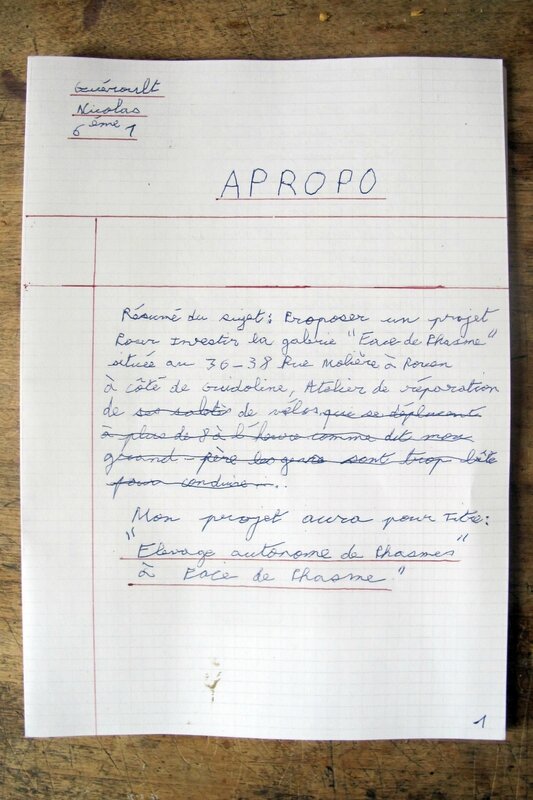 Guéroult
Nicolas
6ème 1
APROPO
Résumé du sujet: Proposer un projet
Pour Investir la galerie "Face de Phasme"
située au 36-38 Rue Molière à Rouen
à côté de Guidoline, Atelier de réparation
de ses saloté de vélos que se déplacent
à plus de 8 à l'heure comme dit mon
grand-père les gens sont trop bête
pour conduire...
Mon projet aura pour Titre:
"Elevage autonome de Phasmes"
à Face de Phasme"
1